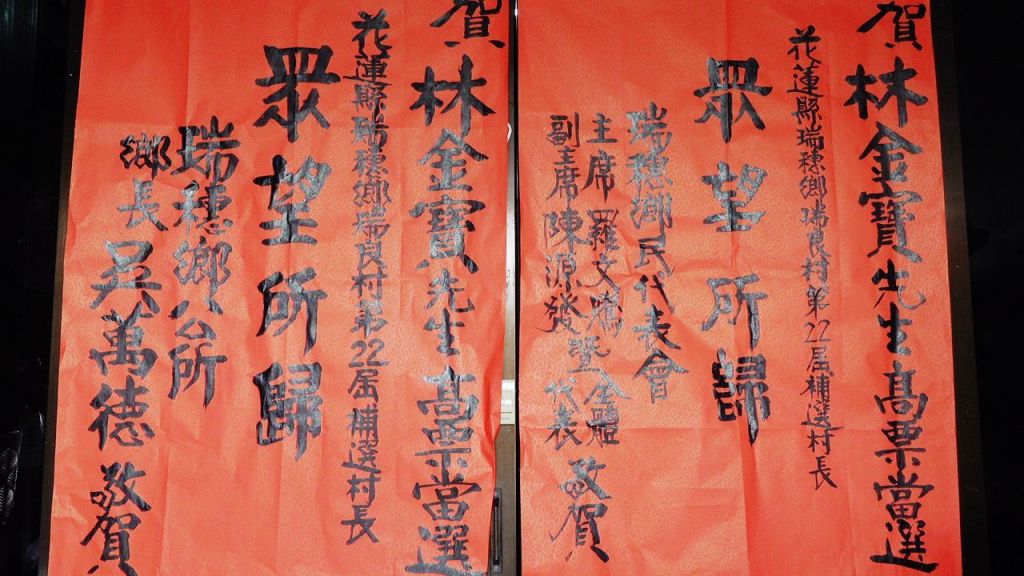 賀林金寶先生高票當選
花蓮縣瑞穗鄉瑞良村第22屆補選村長
眾望所歸
瑞穗鄉民代表會
主席羅文
副主席陳源發
暨
全體
代表
敬賀
賀林金寶先生高票當選
花蓮縣瑞穗鄉瑞良村第22屆補選村長
眾望所歸
瑞穗鄉公所
鄉長吳萬德敬賀